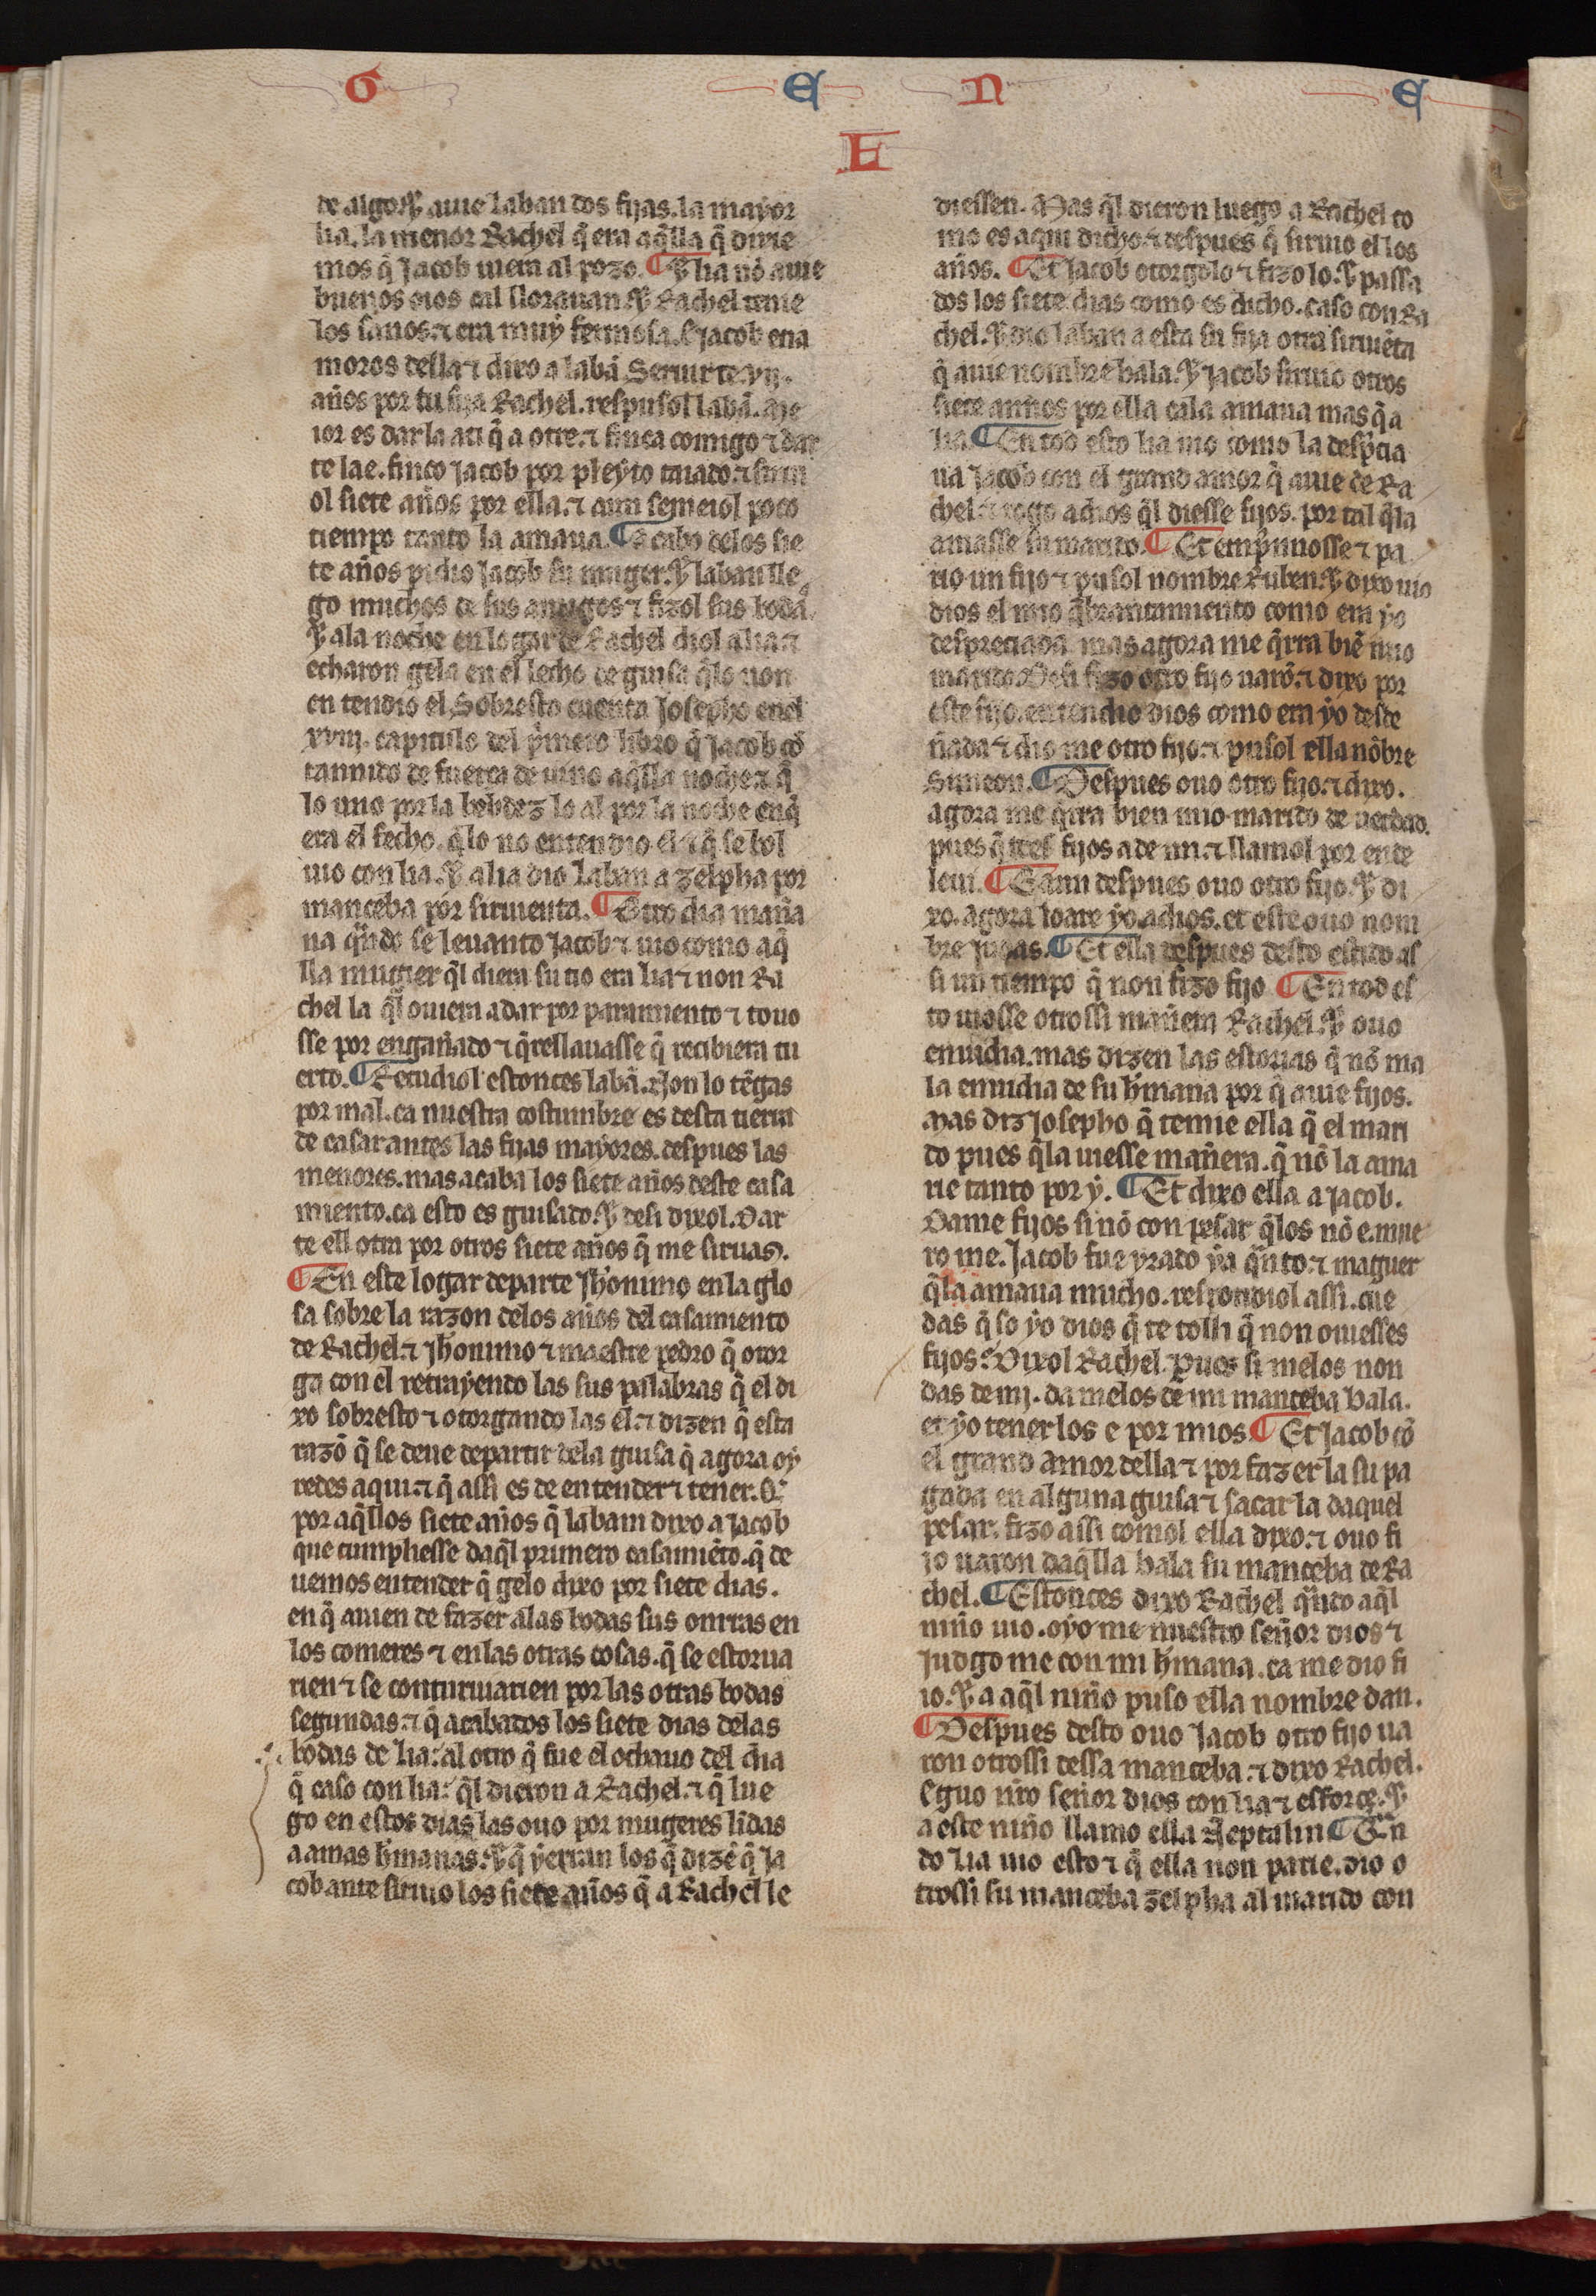 G E N E
E
de algo. Y auie laban dos fijas. la mayor
lia. la menor Rachel q̃ era aq̃lla q̃ dixie
mos q̃ Jacob uiera al pozo. ¶ Y lia nõ auie
buenos oios cal llorauan. Y Rachel tenie
los sanos. ⁊ era muy fermosa. E Jacob ena
moros della ⁊ dixo a labã. Seruir te .vij.
años por tu fija Rachel. respusol labã. me
ior es dar la a ti q̃ a otre. ⁊ finca comigo ⁊ dar
te la e. finco Jacob por pleyto taiado. ⁊ siruí
ol siete años por ella. ⁊ aun semeiol poco
tiempo tanto la amaua. ¶ A cabo delos sie
te años pidio Jacob su muger. Y laban lle
go muchos de sus amigos ⁊ fizol sus bodas
Y ala noche en logar de Rachel diol a lia ⁊
echaron gela en el lecho de guisa q̃ lo non
en tendio el. Sobresto cuenta Josepho enel
xviij. capitulo del p̃mero libro q̃ Jacob cõ
tannido de fuerça de uino aq̃lla noche. ⁊ q̃
lo uno por la bebdez lo al por la noche en q̃
era el fecho. q̃ lo no entendio el ⁊ q̃ se bol
uio con lia. Y a lia dio Laban a zelpha por
manceba por siruienta. ¶ Otro dia maña
na qũdo se leuanto Jacob ⁊ uio como aq̃
lla mugier q̃l diera su tio era lia ⁊ non Ra
chel la q̃l ouiera a dar por paramiento ⁊ touo
sse por engañado ⁊ q̃rellauasse q̃ recibiera tu
erto. ¶ Recudiol estonces labã. Non lo tẽgas
por mal. ca nuestra costumbre es desta tierra
de casar antes las fijas mayores. despues las
menores. mas acaba los siete años deste casa
miento. ca esto es guisado. Y desi dixol. Dar
te ell otra por otros siete años q̃ me siruas.
¶ En este logar departe Jhonimo en la glo
sa sobre la razon delos años del casamiento
de Rachel. ⁊ Jhonimo ⁊ maestre pedro q̃ otor
ga con el retrayendo las sus palabras q̃ el di
xo sobresto ⁊ otorgando las el. ⁊ dizen q̃ esta
razõ q̃ se deue departir dela guisa q̃ agora oy
redes aqui. ⁊ q̃ assi es de entender ⁊ tener. Q̃
por aq̃llos siete años q̃ labam dixo a Jacob
que cumpliesse daq̃l primero casamiẽto. q̃ de
uemos entender q̃ gelo dixo por siete dias.
en q̃ auien de fazer alas bodas sus onrras en
los comeres ⁊ enlas otras cosas. q̃ se estorua
rien ⁊ se conturuiarien por las otras bodas
segundas. ⁊ q̃ acabados los siete dias delas
bodas de lia. al otro q̃ fue el ochauo del dia
q̃ caso con lia. q̃l dieron a Rachel. ⁊ q̃ lue
go en estos dias las ouo por mugeres lidas
a amas hmanas. Y q̃ yerran los q̃ dizẽ q̃ Ja
cob ante siruio los siete años q̃ a Rachel le
diessen. Mas q̃l dieron luego a Rachel co
mo es aqui dicho. ⁊ despues q̃ siruio el los
años. ¶ Et Jacob otorgolo ⁊ fizo lo. Y passa
dos los siete dias como es dicho. caso con Ra
chel. Y dio laban a esta su fija otra siruiẽta
q̃ auie nombre bala. Y Jacob siruio otros
siete annos por ella ca la amaua mas q̃ a
lia. ¶ En tod esto lia uio como la desp̃cia
ua Jacob con el grand amor q̃ auie de Ra
chel. ⁊ rogo a dios q̃l diesse fijos. por tal q̃ la
amasse su marido. ¶ Et emp̃nnosse ⁊ pa
rio un fijo ⁊ pusol nombre Ruben. Y dixo uio
dios el mio q̃brantamiento como era yo
despreciada. mas agora me q̃rra biẽ mio
marido. Desi fizo otro fijo uarõ. ⁊ dixo por
este fijo. entendio dios como era yo desde
ñada ⁊ dio me otro fijo. ⁊ pusol ella nõbre
Simeon. ¶ Despues ouo otro fijo. ⁊ dixo.
agora me q̃rra bien mio marido de uerdad.
pues q̃ tres fijos a de mi. ⁊ llamol por ende
leui. ¶ E aun despues ouo otro fijo. Y di
xo. agora loare yo a dios. et este ouo nom
bre Judas. ¶ Et ella despues desto estido as
si un tiempo q̃ non fizo fijo. ¶ En tod es
to uiosse otrossi mañera Rachel. Y ouo
enuidia. mas dizen las estorias q̃ nõ ma
la enuidia de su hmana por q̃ auie fijos.
Mas diz Josepho q̃ temie ella q̃ el mari
do pues q̃ la uiesse mañera. q̃ nõ la ama
rie tanto por y. ¶ Et dixo ella a Jacob.
Dame fijos si nõ con pesar q̃ los nõ e. mue
ro me. Jacob fue yrado ya q̃nto. ⁊ maguer
q̃ la amaua mucho. respondiol assi. cue
das q̃ so yo dios q̃ te tolli q̃ non ouiesses
fijos. Dixol Rachel. Pues si melos non
das de mj. da melos de mi manceba bala.
et yo tener los e por mios. ¶ Et Jacob cõ
el grand amor della ⁊ por fazer la su pa
gada en alguna guisa ⁊ sacar la daquel
pesar. fizo assi comol ella dixo. ⁊ ouo fi
jo uaron daq̃lla bala su manceba de Ra
chel. ¶ Estonces dixo Rachel qũdo aq̃l
niño uio. oyo me nuestro señor dios ⁊
Judgo me con mi hmana. ca me dio fi
io. Y a aq̃l niño puso ella nombre dan.
¶ Despues desto ouo Jacob otro fijo ua
ron otrossi dessa manceba. ⁊ dixo Rachel.
Eguo nr̃o señor dios con lia ⁊ esforçe. Y
a este niño llamo ella Neptalin ¶ Qũn
do Lia uio esto ⁊ q̃ ella non parie. dio o
trossi su manceba zelpha al marido con